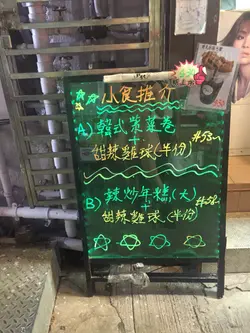 小食推介
A) 韓式紫菜卷
+
甜辣雞球(半份)
B) 辣炒年糕(大)
+
甜辣雞球(半份)